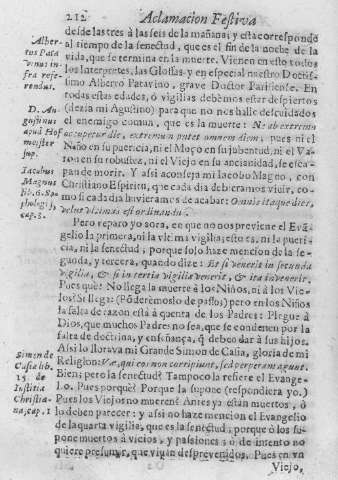 212 Aclamacion Festiva
desde las tres à las seis de la mañana; y esta correspondo
al tiempo de la senectud, que es el fin de la noche de la
vida, que se termina en la muerte. Vienen en esto todos
los Interpretes, las Glossas y en especial nuestro Doctis-
simo Alberto Patavino, grave Doctor Parisiense. En
todas estas edades, ò vigilias debèmos estar despiertos
(dezia mi Agustino) para que no nos halle descuidados
el enemigo comun, que es la muerte: Ne ab extremo
occuperur die, extremum putet omnem diem; pues ni el
Niño en su puericia, ni el Moço en su juventud, ni el Va-
ron en su robustez, ni el Viejo en su ancianidad, se esca-
pan de morir. Y assi aconseja mi Iacobo Magno, con
Christiano Espiritu, que cada dia deberiamos vivir, co-
mo si cada dia huvieramos de acabar: Omnis itaque dies,
velut ultimus est ordinandus.
Pero reparo yo aora, en que no nos previene el Eva-
gelio la primera, ni la vltima vigilia; esto es, ni la pueri-
cia, ni la senectud; porque solo haze mencion de la se-
gunda, y tercera, quando dize: Et si venerit in secunda
vigilia, & si in tertia vigilia venerit, & ita invenerit.
Pues què? No llega la muerte à los Niños, ni à los Vie-
jos? Si llega: (Põderémoslo de passo) pero en los Niños
la falta de razon està à quenta de los Padres: Plegue à
Dios, que muchos Padres no sea, que se condenen por la
falta de doctrina, y enseñança, q̃ deben dar à sus hijos.
Assi lo llorava mi Grande Simon de Casia, gloria de mi
Religion: Væ, qui non corripiunt, sed deperam agunt.
Bien; pero la senectud? Tampoco la refiere el Evange-
lio. Pues porquè? Porque la supone (respondiera yo.)
Pues los Viejos no mueren? Antes yà estàn muertos, ò
lo deben parecer: y assi no haze mencion el Evangelio
de la quarta vigilia, que es la senectud, porque ò los su-
pone muertos à vicios, y passiones; ò de intento no
quiere presumir, que vivan desprevenidos. Pues en vn
Viejo,
Alber-
tus Pata
vinus in-
fra refe-
rendus.
D. Au-
gustinus
apud Hof
meister
sup.
Iacobus
Magnus
lib. 6. So-
phologij,
cap. 3.
Simon de
Casia lib.
15 de
Instit͠a
Christia-
na, cap. 1